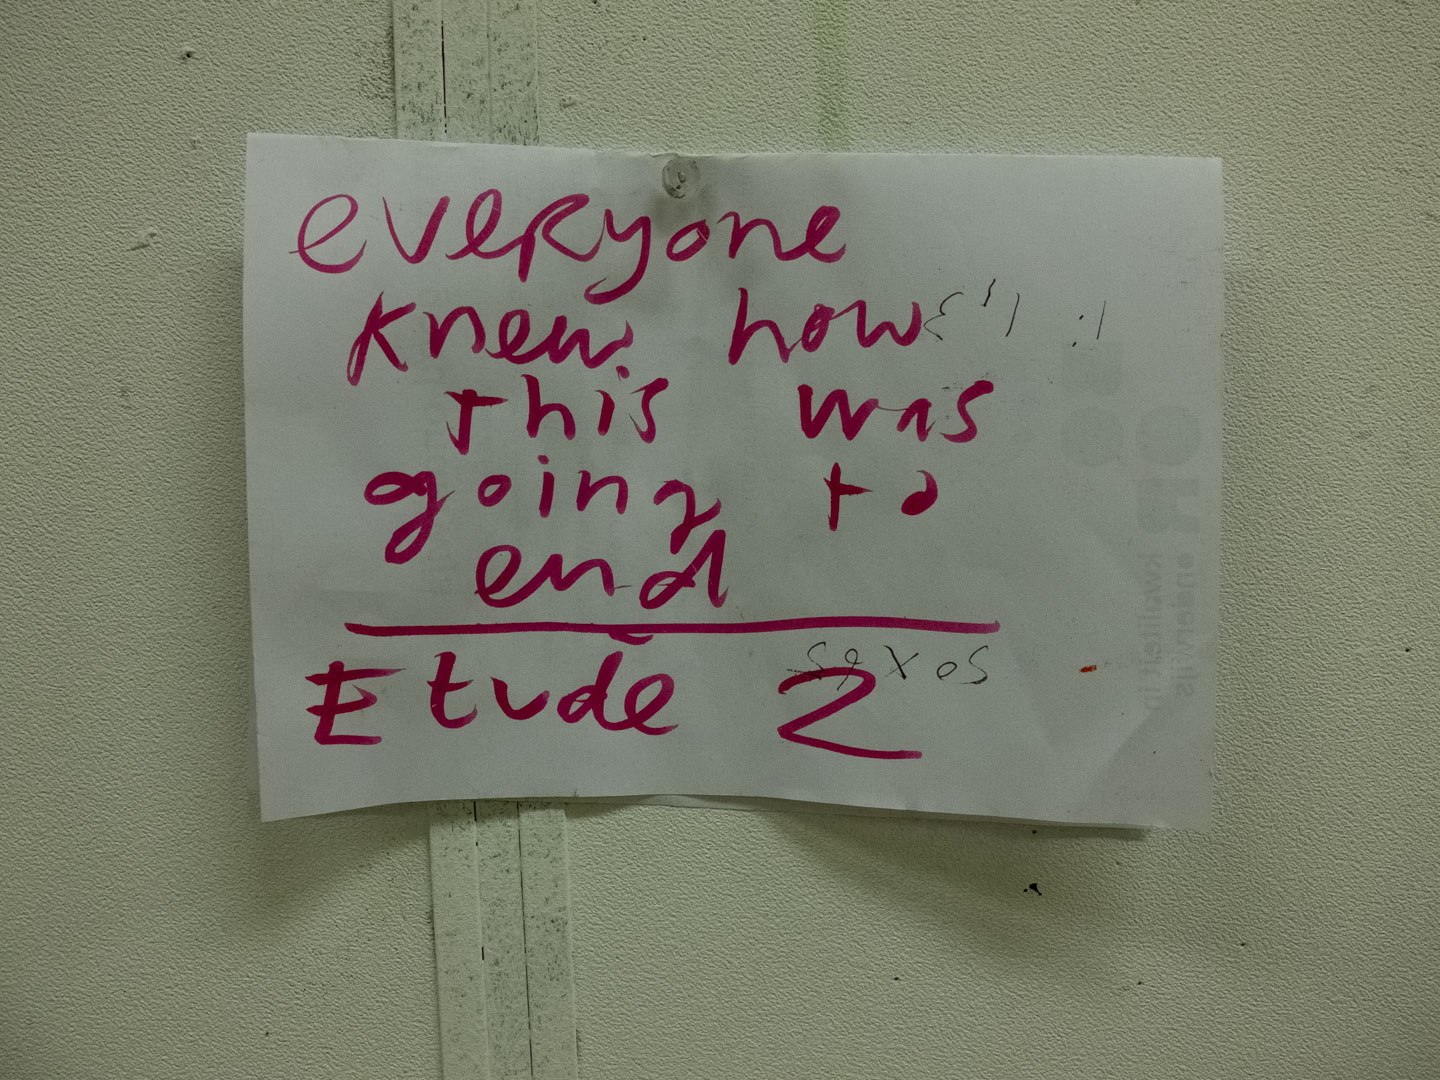 everyone
knew how
this was
going to
end
Etude 2